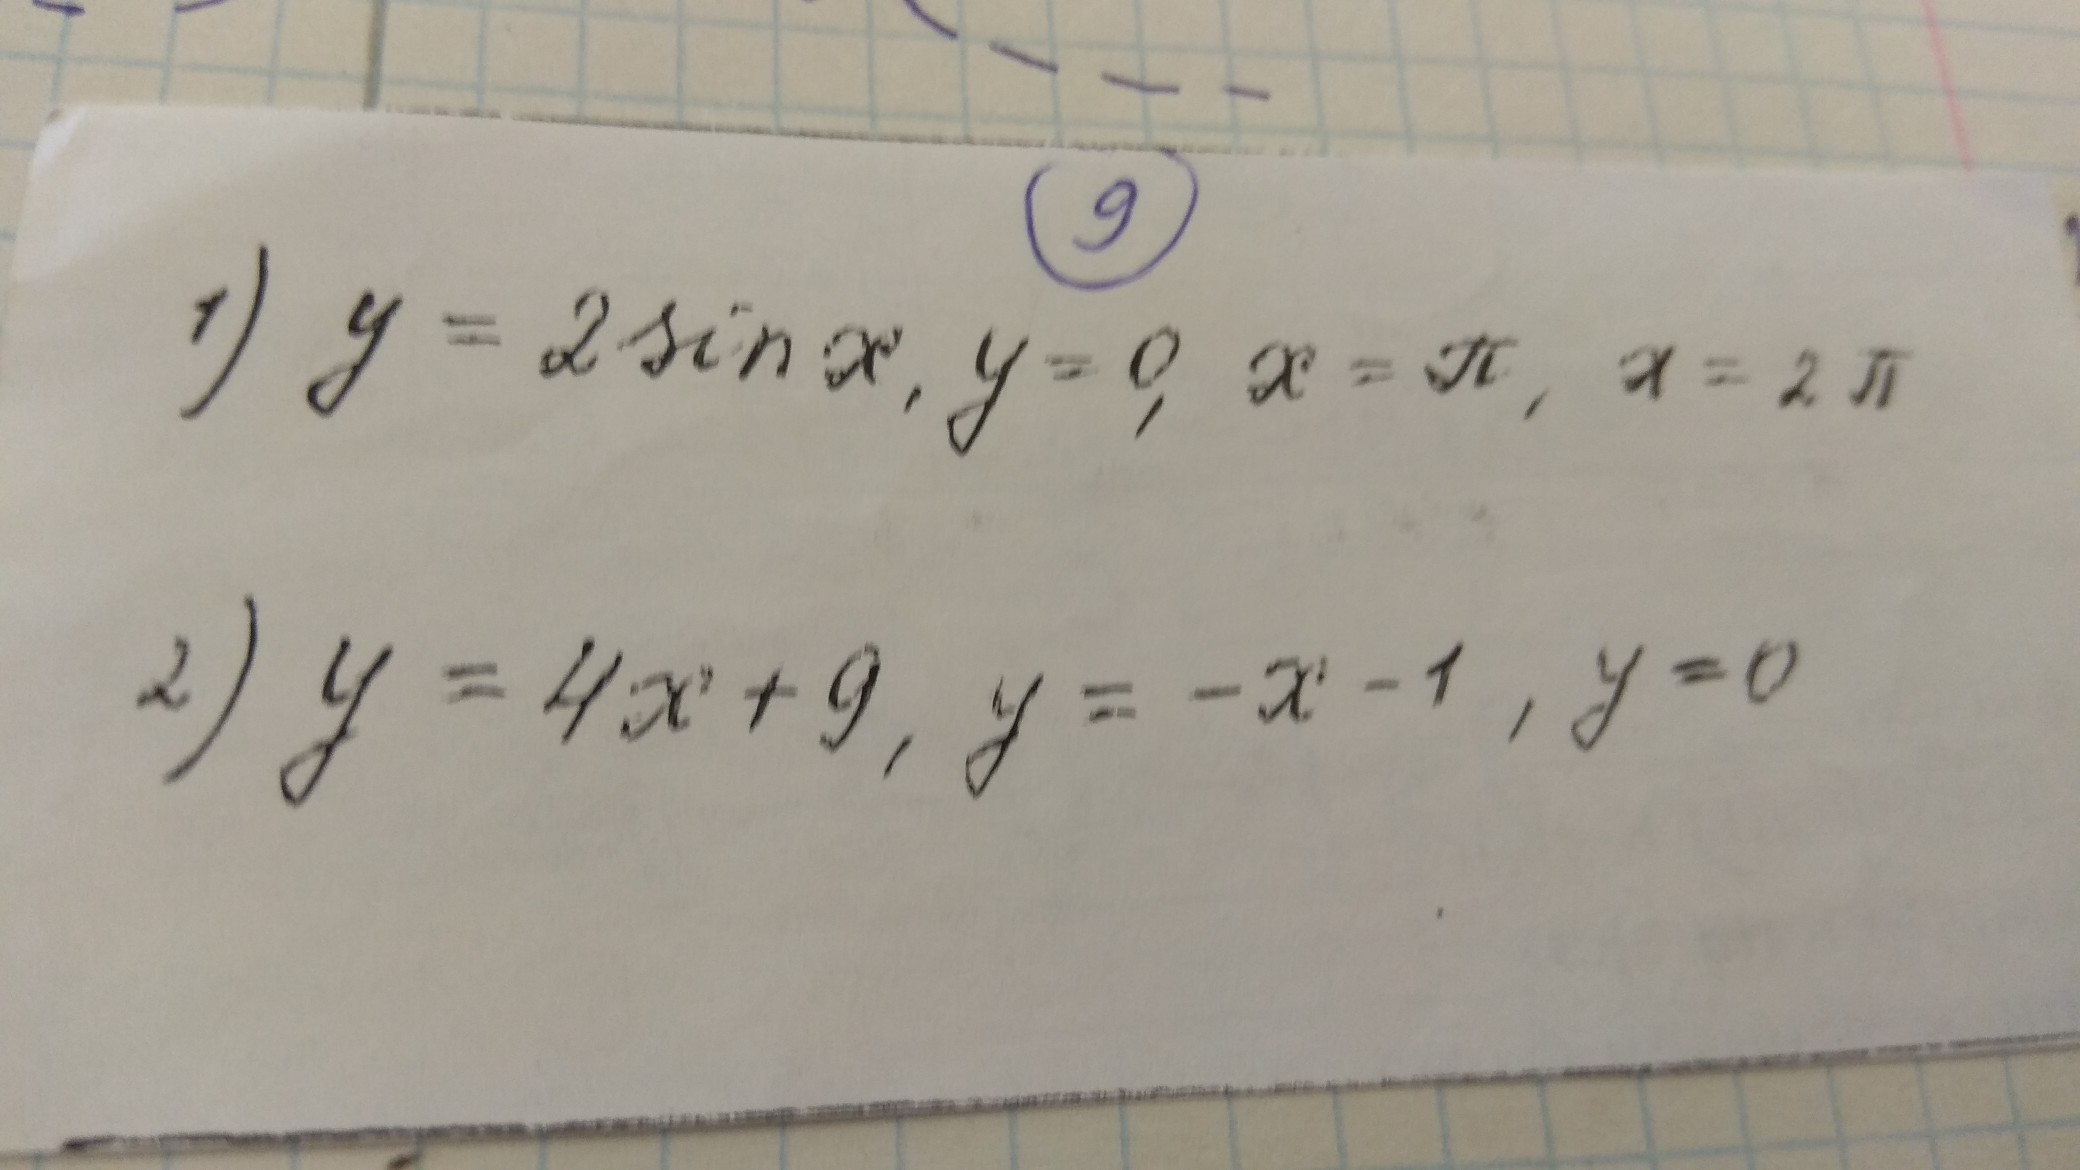 9
1) y = 2 sin x, y = 0, x = π, x = 2π
2) y = 4x + 9, y = -x - 1, y = 0